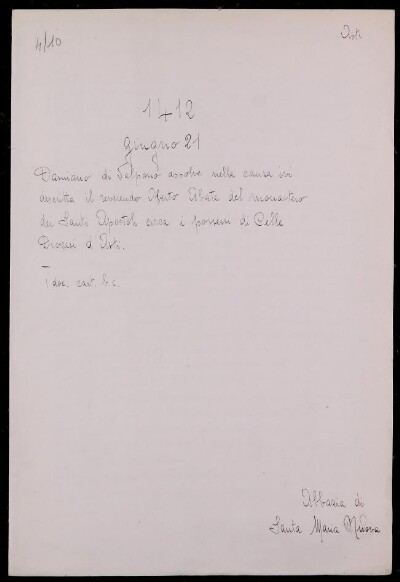 4/10
Asti
1412
giugno 21
Damiano di Valpono assolve nella causa ivi
descritta il reverendo Oberto Abate del monastero
dei Santi Apostoli circa i possessi di Celle
Diocesi d'Asti.
1 doc. cart. b.c.
Abbazia di
Santa Maria Nuova